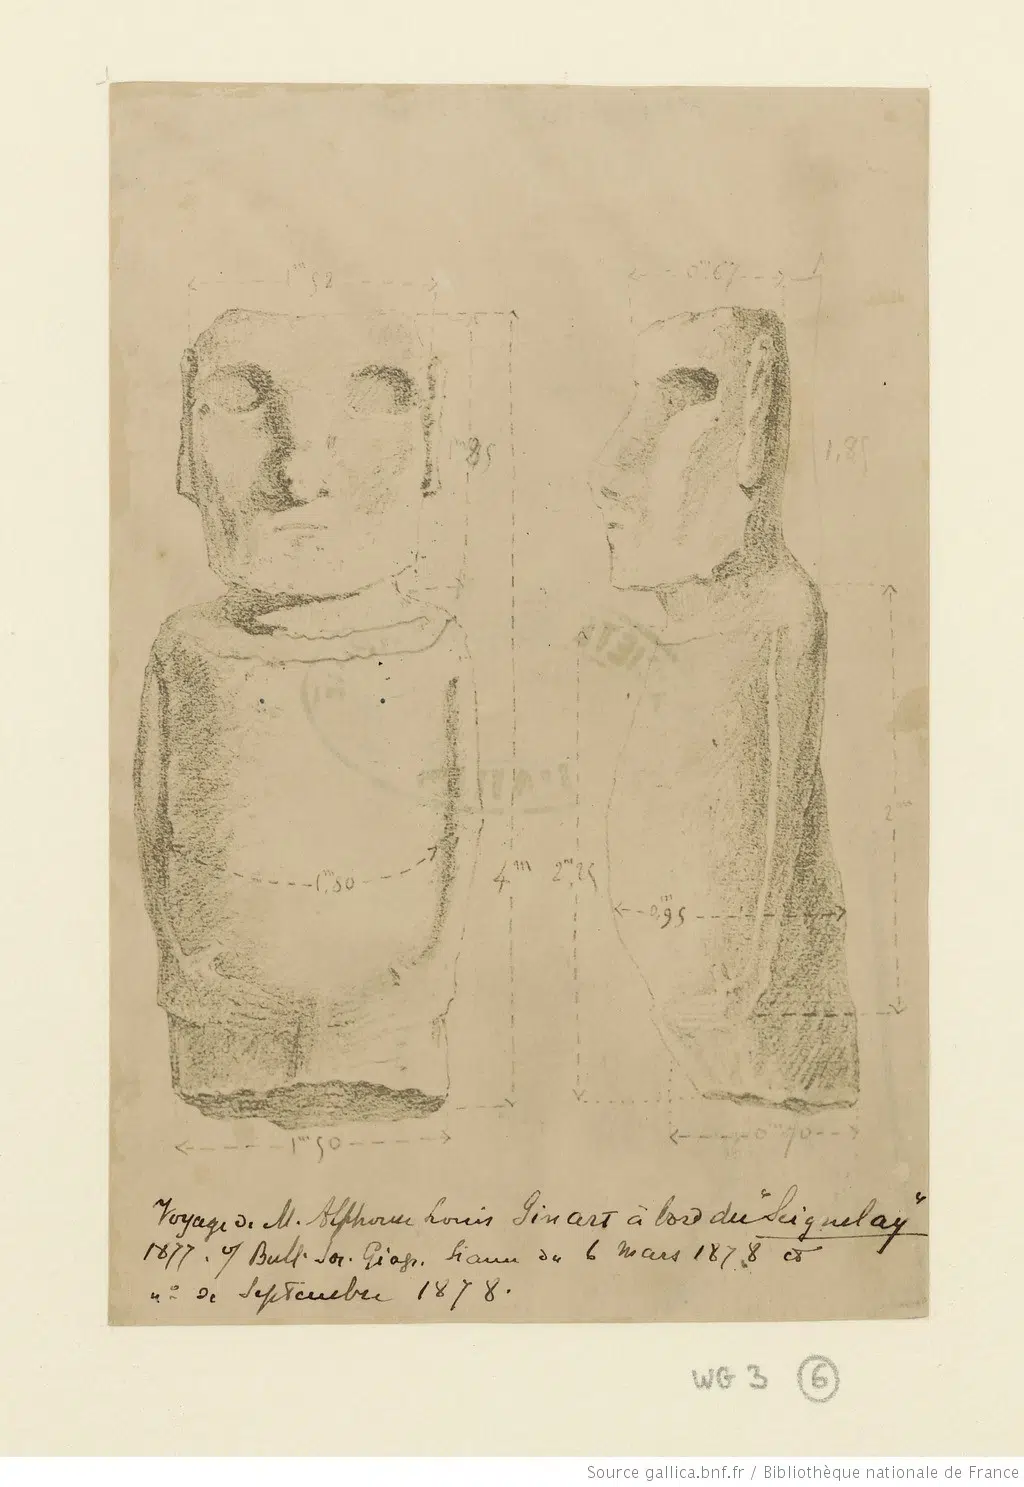 1m,52
0m,67
1m,85
1,85
2m
1m,80
4m
2m,25
0m,95
1m,50
Voyage de M. Alphonse Louis Pinart à bord du "Seignelay"
1877. Bull. Soc. Géogr. Séance du 6 Mars 1878 et
no de Septembre 1878.
WG 3 6
Source gallica.bnf.fr / Bibliothèque nationale de France